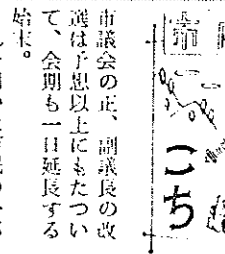 市
こち
市議会の正、副議長の改
選は予想以上にもたつい
て、会期も一日延長する
始末。